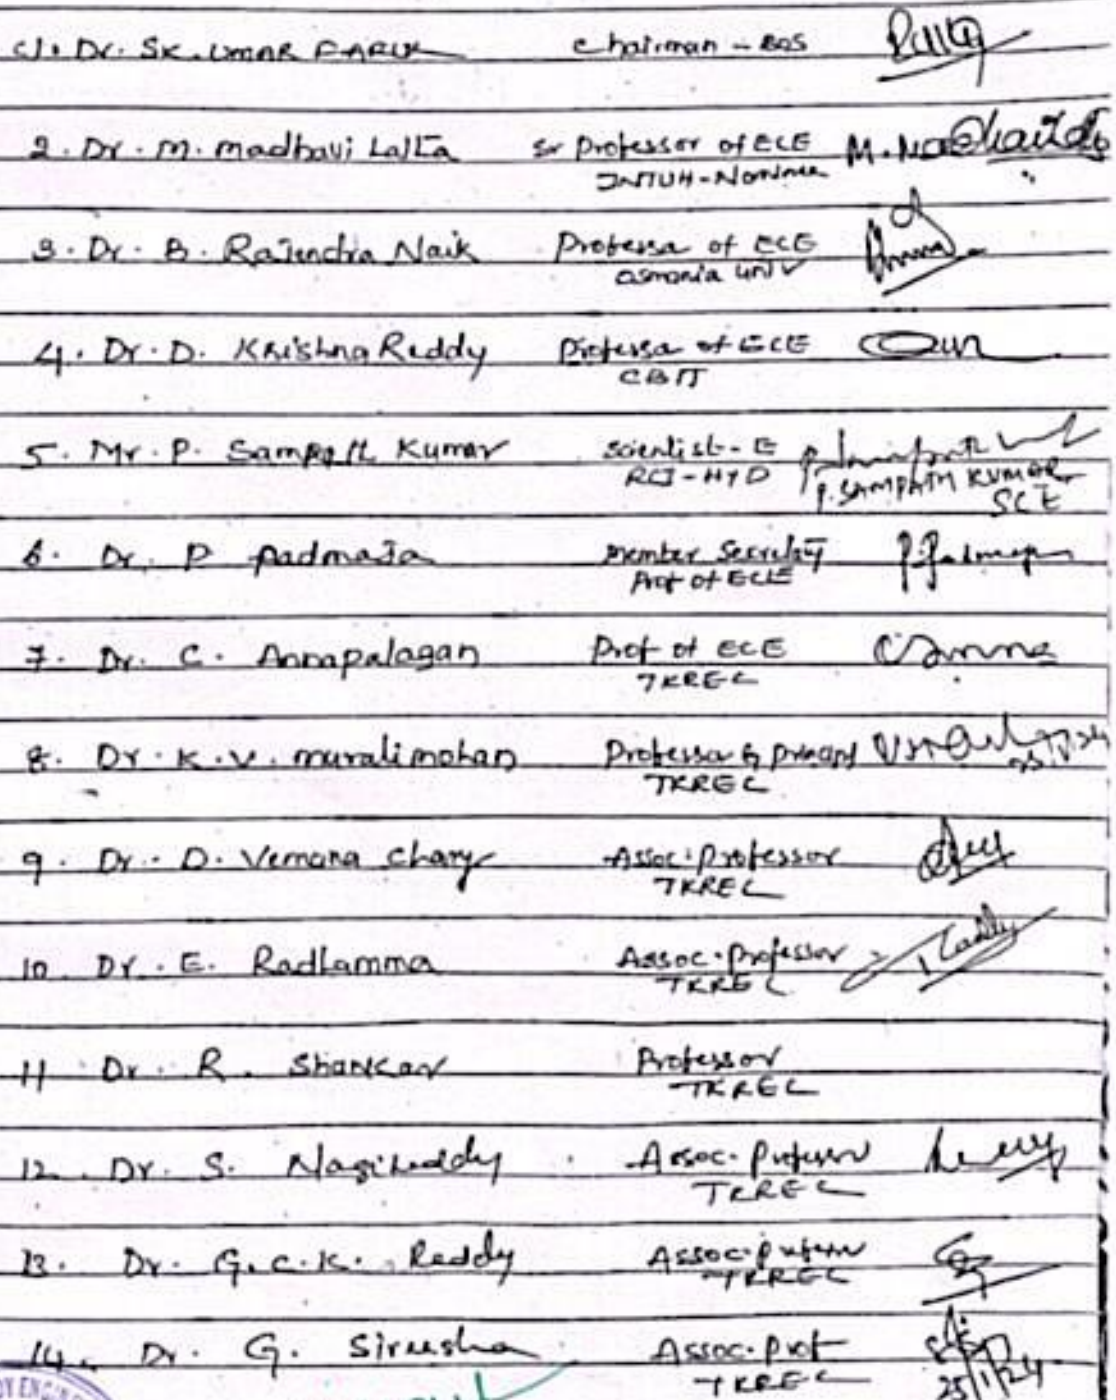 1. Dr. SK. UMAR FARUK Chairman - BOS
2. Dr. M. madhavi Latta Sr Professor of ECE
JNTUH-Nominee
3. Dr. B. Rajendra Naik Professor of ECE
osmania univ
4. Dr. D. Krishna Reddy Professor of ECE
CBIT
5. Mr. P. Sampath Kumar Scientist - E
RCI - HYD P. SAMPATH KUMAR
SC E
6. Dr. P Padmaja Member Secretary
Prof of ECE
7. Dr. C. Annapalagan Prof of ECE
TKREC
8. Dr. K. V. muralimohan Professor &
TKREC
9. Dr. D. Vemana chary Assoc. Professor
TKREC
10 Dr. E. Radhamma Assoc. Professor
TKREC
11 Dr. R. Shankar Professor
TKREC
12. Dr. S. Nagireddy Assoc. Professor
TKREC
13. Dr. G. C. K. Reddy Assoc. Professor
TKREC
14. Dr. G. Sireesha Assoc. Prof
TKREC 25/1/24